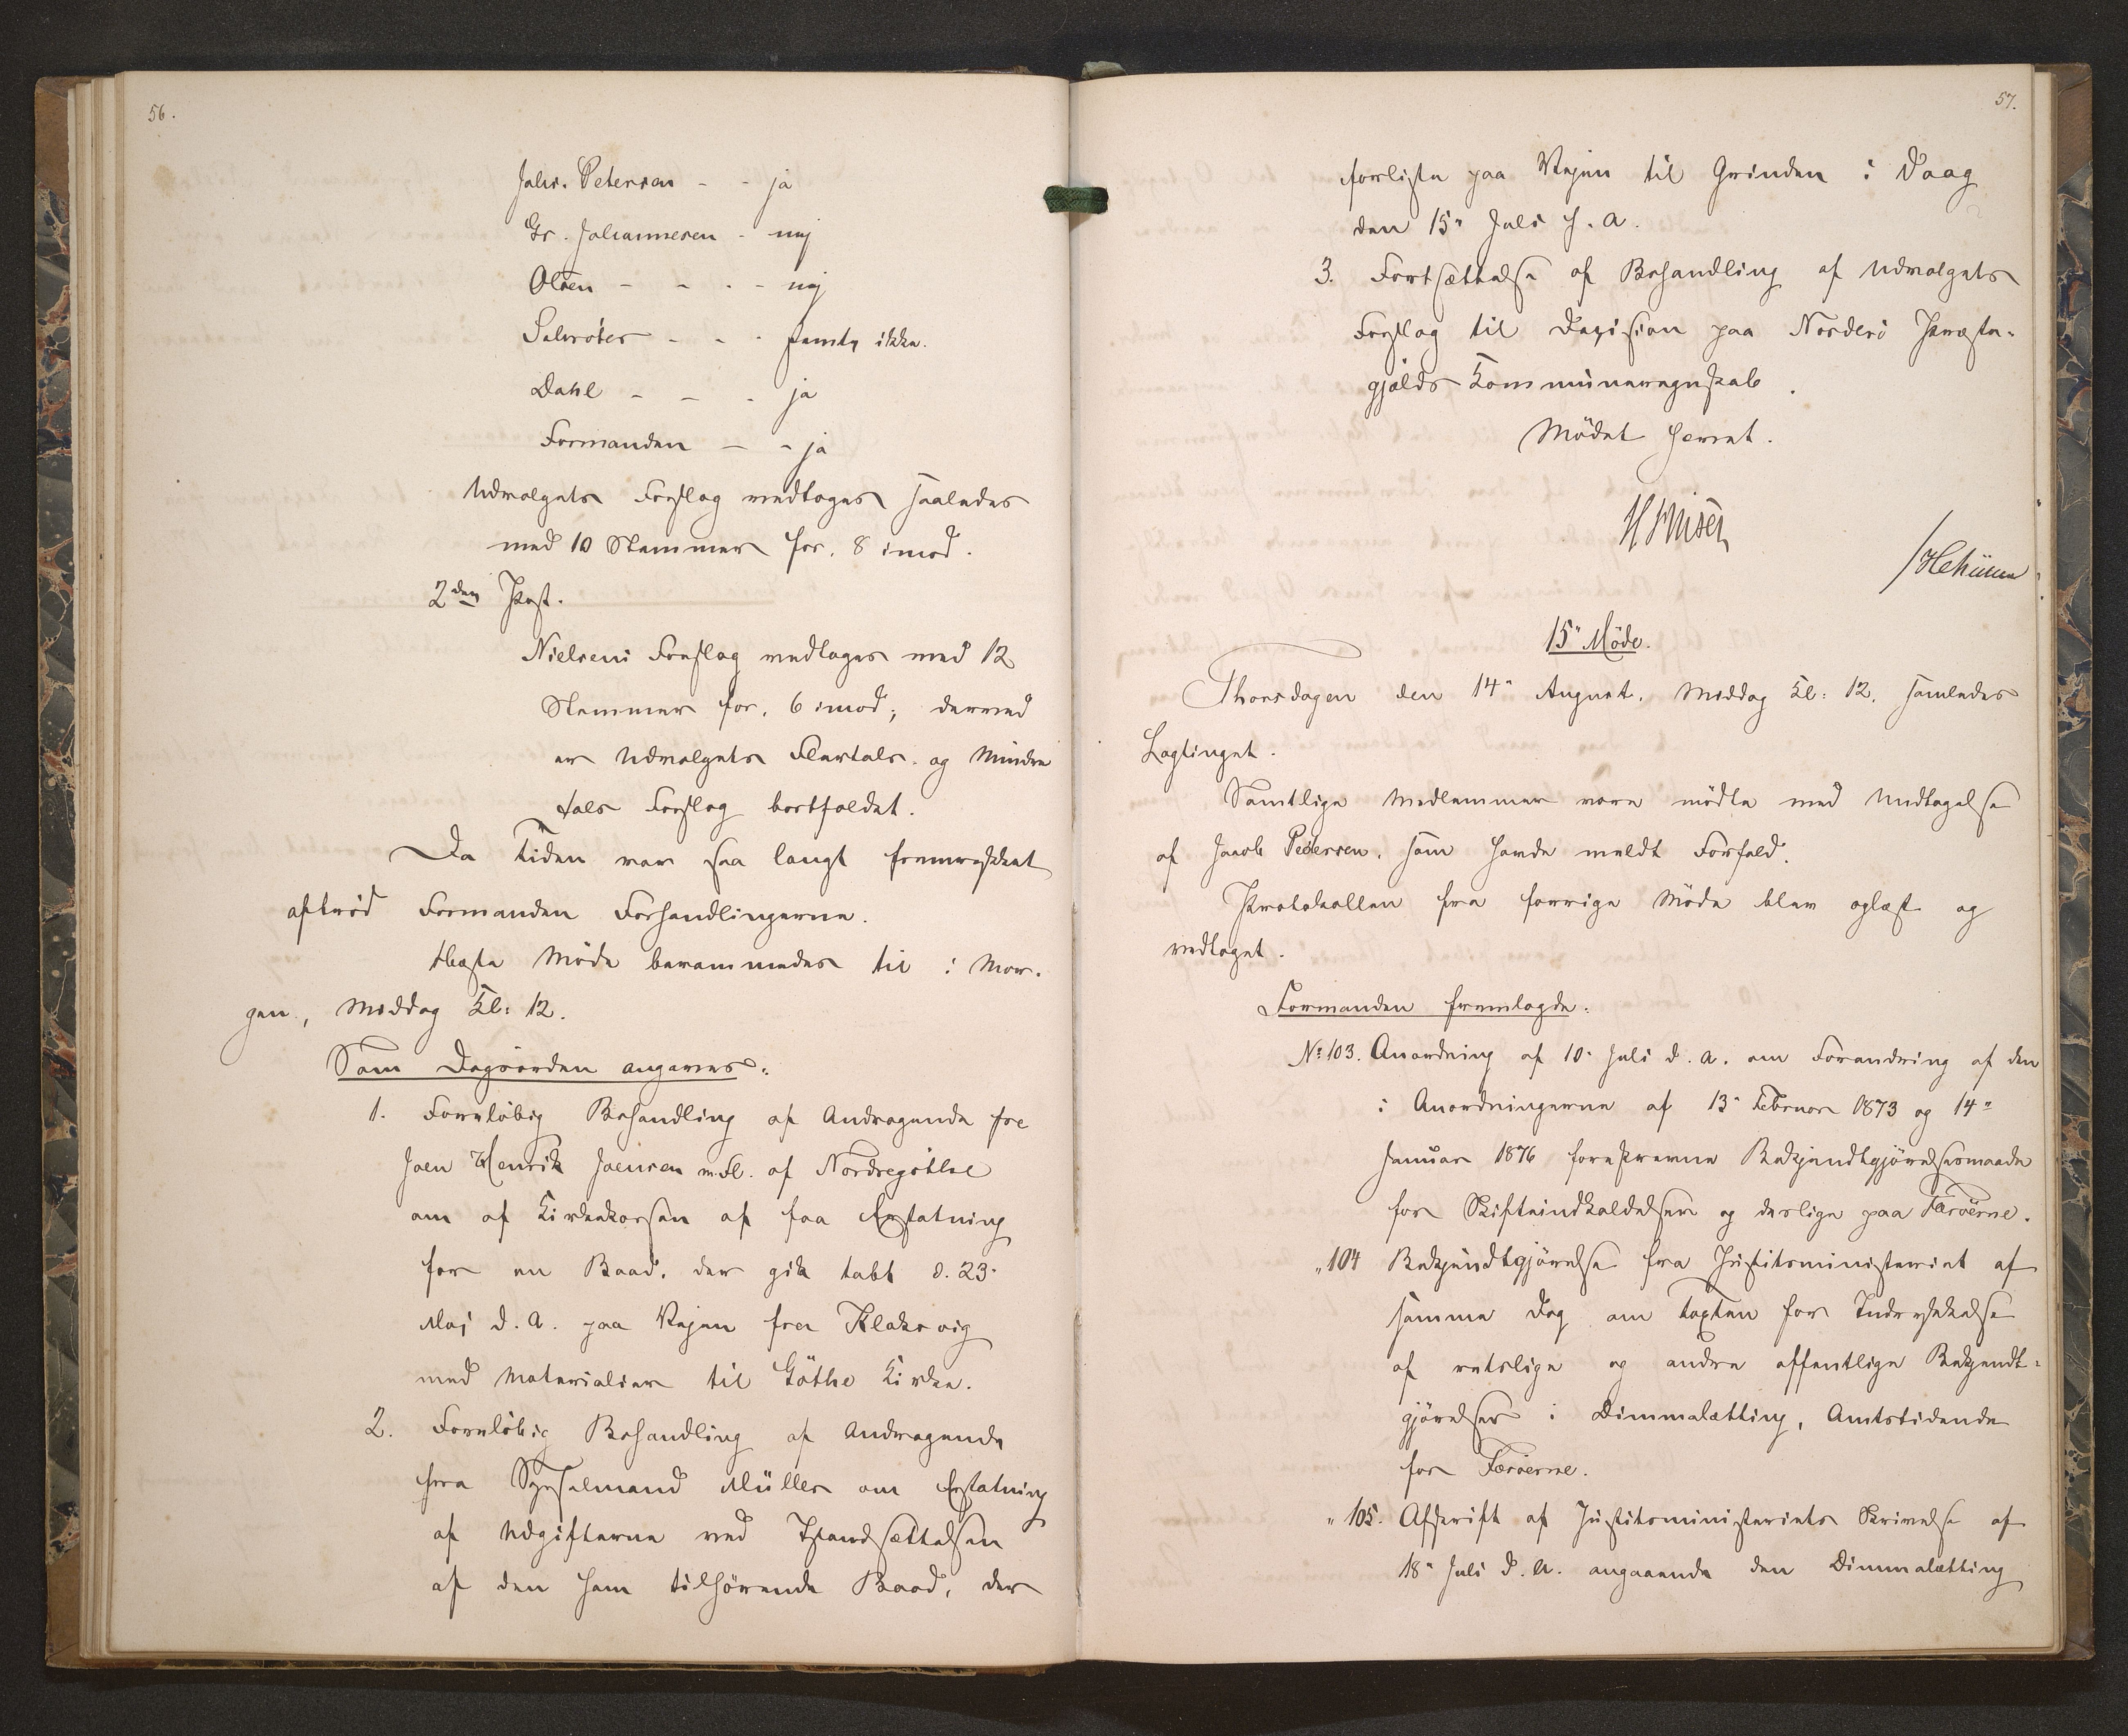 56.
Johs. Petersen - - ja
Gr. Johannesen - nej
Olsen - - - - nej
Salvröter - - - stemte ikke.
Dahl - - - ja
Formanden - - ja
Udvalgets Forslag vedtoges saaledes
med 10 Stemmer for, 8 imod.
2den Post.
Nielsens Forslag vedtoges med 12
Stemmer for, 6 imod; dermed
er Udvalgets Flertals- og Mindre
tals Forslag bortfaldet.
Da Tiden var saa langt fremrykket
afbröd Formanden Forhandlingerne.
Næste Möde berammedes til i Mor-
gen, Middag Kl: 12.
Som Dagsorden angaves:
1. Forelöbig Behandling af Andragende fra
Joen Henrik Joensen m. Fl. af Nordregöthe
om af Kirkekassen at faa Erstatning
for en Baad, der gik tabt d. 23.
Maj d. A. paa Rejsen fra Klaksvig
med Materialier til Göthe Kirke.
2. Forelöbig Behandling af Andragende
fra Sysselmand Müller om Erstatning
af Udgifterne ved Istandsættelsen
af den ham tilhörende Baad, der
57.
forliste paa Rejsen til Grinden i Vaag
den 15" Juli f. A.
3. Fortsættelse af Behandling af Udvalgets
Forslag til Decision paa Norderö Præste-
gjælds Kommuneregnskab.
Mödet hævet.
H Finsen
15" Möde.
Thorsdagen den 14" August, Middag Kl: 12, samledes
Lagtinget.
Samtlige Medlemmer vare mödte med Undtagelse
af Jacob Pedersen, som havde meldt Forfald.
Protokollen fra forrige Möde blev oplæst og
vedtaget.
Formanden fremlagde:
No 103. Anordning af 10" Juli d. A. om Forandring af den
i Anordningerne af 13" Februar 1873 og 14"
Januar 1876 foreskrevne Bekjendtgjörelsesmaade
for Skifteindkaldelser og deslige paa Færöerne.
" 104 Bekjendtgjörelse fra Justitsministeriet af
samme Dag om Taxten for Indrykkelse
af retslige og andre offentlige Bekjendt-
gjörelser i Dimmalætting, Amtstidende
for Færöerne.
" 105. Afskrift af Justitsministeriets Skrivelse af
18" Juli d. A. angaaende den Dimmalætting